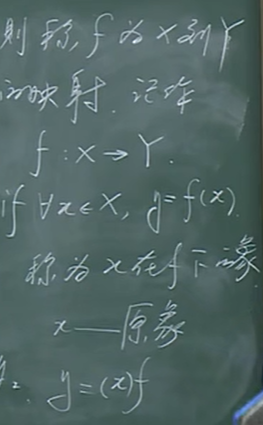 则称f为X到Y
的映射.记作
f:X→Y.
if ∀x∈X, y=f(x)
称为x在f下的象
x——原象
y=(x)f